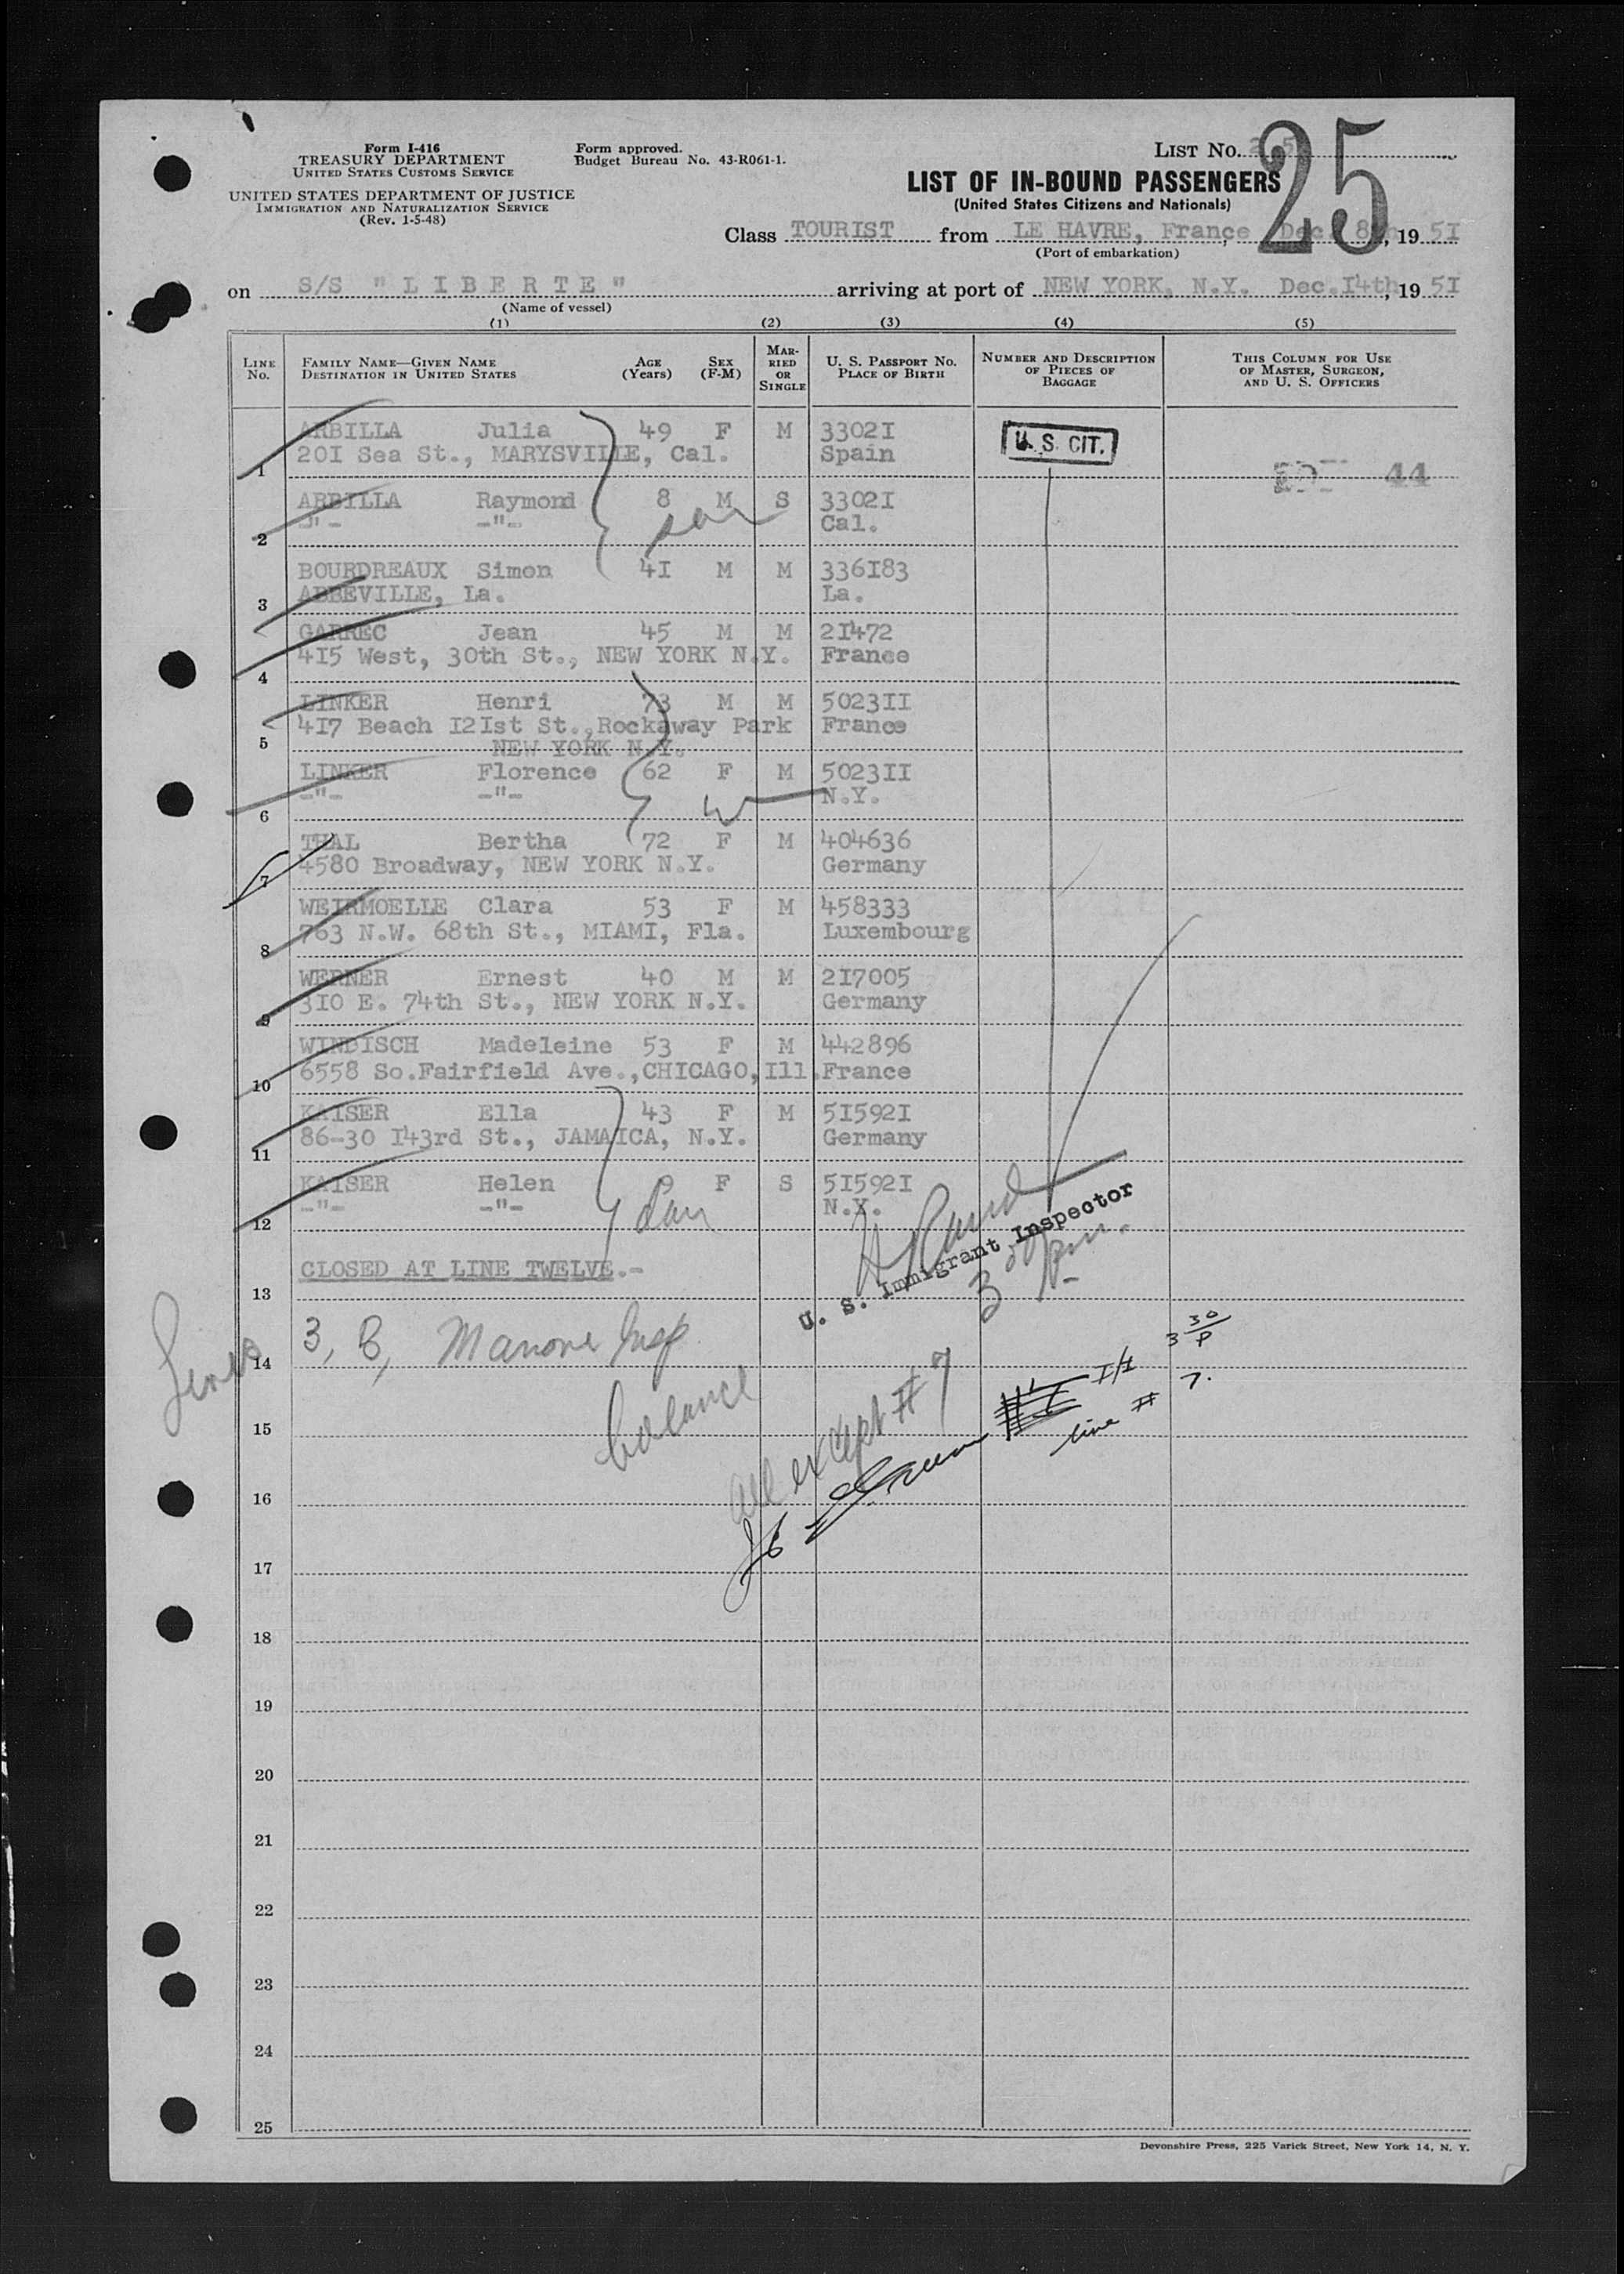 Form I-416
TREASURY DEPARTMENT
UNITED STATES CUSTOMS SERVICE
UNITED STATES DEPARTMENT OF JUSTICE
IMMIGRATION AND NATURALIZATION SERVICE
(Rev. 1-5-48)
Form approved.
Budget Bureau No. 43-R061-1.
LIST No. 25
25
LIST OF IN-BOUND PASSENGERS
(United States Citizens and Nationals)
Class TOURIST from LE HAVRE, France, Dec. 8, 19 5I
(Port of embarkation)
on S/S "L I B E R T E" arriving at port of NEW YORK, N.Y. Dec.I4th, 19 5I
(Name of vessel)
(1) (2) (3) (4) (5)
LINE No.
FAMILY NAME—GIVEN NAME
DESTINATION IN UNITED STATES
AGE (Years)
SEX (F-M)
MARRIED OR SINGLE
U. S. PASSPORT No.
PLACE OF BIRTH
NUMBER AND DESCRIPTION OF PIECES OF BAGGAGE
THIS COLUMN FOR USE OF MASTER, SURGEON, AND U. S. OFFICERS
ARBILLA Julia 49 F M 3302I
U. S. CIT.
1 20I Sea St., MARYSVILLE, Cal. Spain
44
ARBILLA Raymond 8 M S 3302I
2 -"- -"- Cal.
son
BOURDREAUX Simon 4I M M 336I83
3 ABBEVILLE, La. La.
GARREC Jean 45 M M 2I472
4 4I5 West, 30th St., NEW YORK N.Y. France
LINKER Henri 73 M M 5023II
5 4I7 Beach I2Ist St.,Rockaway Park France
NEW YORK N.Y.
LINKER Florence 62 F M 5023II
6 -"- -"- N.Y.
W
THAL Bertha 72 F M 404636
7 4580 Broadway, NEW YORK N.Y. Germany
WEIRMOELLE Clara 53 F M 458333
8 763 N.W. 68th St., MIAMI, Fla. Luxembourg
WERNER Ernest 40 M M 2I7005
9 3I0 E. 74th St., NEW YORK N.Y. Germany
WINDISCH Madeleine 53 F M 442896
10 6558 So.Fairfield Ave.,CHICAGO,Ill.France
KAISER Ella 43 F M 5I592I
11 86-30 I43rd St., JAMAICA, N.Y. Germany
KAISER Helen F S 5I592I
12 -"- -"- N.Y.
U. S. Immigrant Inspector
3 00 pm.
13 CLOSED AT LINE TWELVE.-
14 Lines 3, 8, Manone Insp
3 30 P
balance
all except #7
line # 7.
15
16
17
18
19
20
21
22
23
24
25
Devonshire Press, 225 Varick Street, New York 14, N. Y.